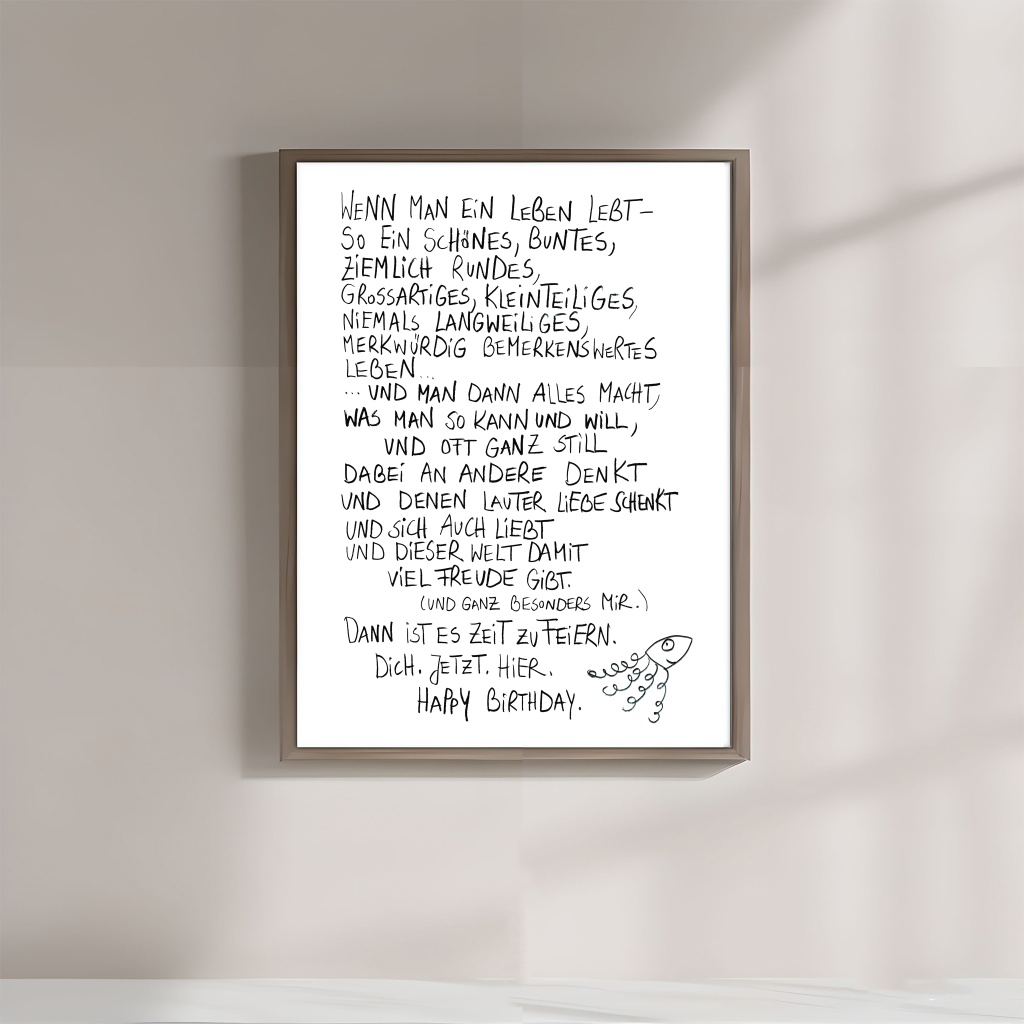 WENN MAN EIN LEBEN LEBT–
SO EIN SCHÖNES, BUNTES,
ZIEMLICH RUNDES,
GROSSARTIGES, KLEINTEILIGES,
NIEMALS LANGWEILIGES,
MERKWÜRDIG BEMERKENSWERTES
LEBEN...
... UND MAN DANN ALLES MACHT,
WAS MAN SO KANN UND WILL,
UND OFT GANZ STILL
DABEI AN ANDERE DENKT
UND DENEN LAUTER LIEBE SCHENKT
UND SICH AUCH LIEBT
UND DIESER WELT DAMIT
VIEL FREUDE GIBT.
(UND GANZ BESONDERS MIR.)
DANN IST ES ZEIT ZU FEIERN.
DICH. JETZT. HIER.
HAPPY BIRTHDAY.